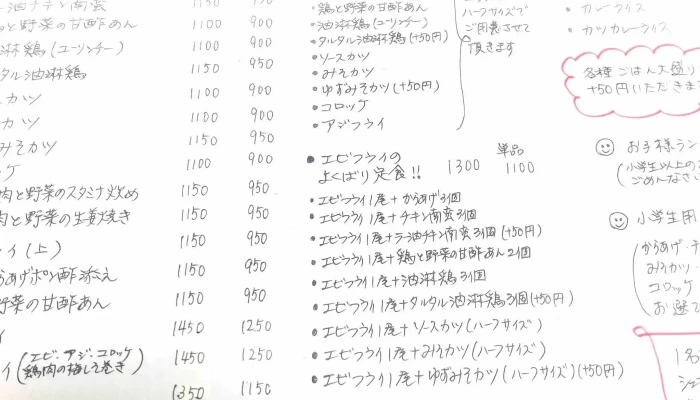 油チキン南蛮 1100 900
と野菜の甘酢あん 1100 900
油淋鶏(ユーリンチー) 1100 900
タルタル油淋鶏 1150 950
スカツ 1100 900
カツ 1100 900
みそカツ 1150 950
ケ 1100 900
肉と野菜のスタミナ炒め 1150 950
肉と野菜の生姜焼き 1150 950
イ(上) 1150 950
らあげポン酢添え 1150 950
野菜の甘酢あん 1150 950
イ 1450 1250
イ(エビ・アジ・コロッケ 鶏肉の梅しそ巻き) 1450 1250
1350 1150
・鶏と野菜の甘酢あん
・油淋鶏(ユーリンチー)
・タルタル油淋鶏(+50円)
・ソースカツ
・みそカツ
・ゆずみそカツ(+50円)
・コロッケ
・アジフライ
ハーフサイズで
ご用意させて
頂きます
● エビフライの
よくばり定食!! 1300 単品 1100
・エビフライ1尾+からあげ3個
・エビフライ1尾+チキン南蛮3個
・エビフライ1尾+ラー油チキン南蛮3個(+50円)
・エビフライ1尾+鶏と野菜の甘酢あん2個
・エビフライ1尾+油淋鶏3個
・エビフライ1尾+タルタル油淋鶏3個(+50円)
・エビフライ1尾+ソースカツ(ハーフサイズ)
・エビフライ1尾+みそカツ(ハーフサイズ)
・エビフライ1尾+ゆずみそカツ(ハーフサイズ)(+50円)
・カレーライス
・カツカレーライス
各種ごはん大盛り
+50円いただきま
お子様ラン
(小学生以上の
ごめんなさい
小学生用
(からあげ・チ
みそカツ・
コロッケ
お選で